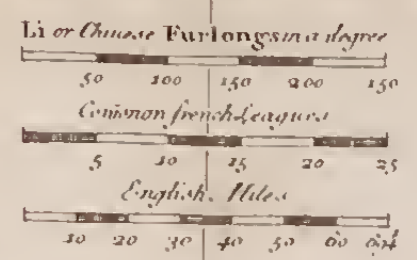 Li or Chinese Furlongs in a degree
50 100 150 200 150
Common french Leagues
5 10 15 20 25
English Miles
10 20 30 40 50 60